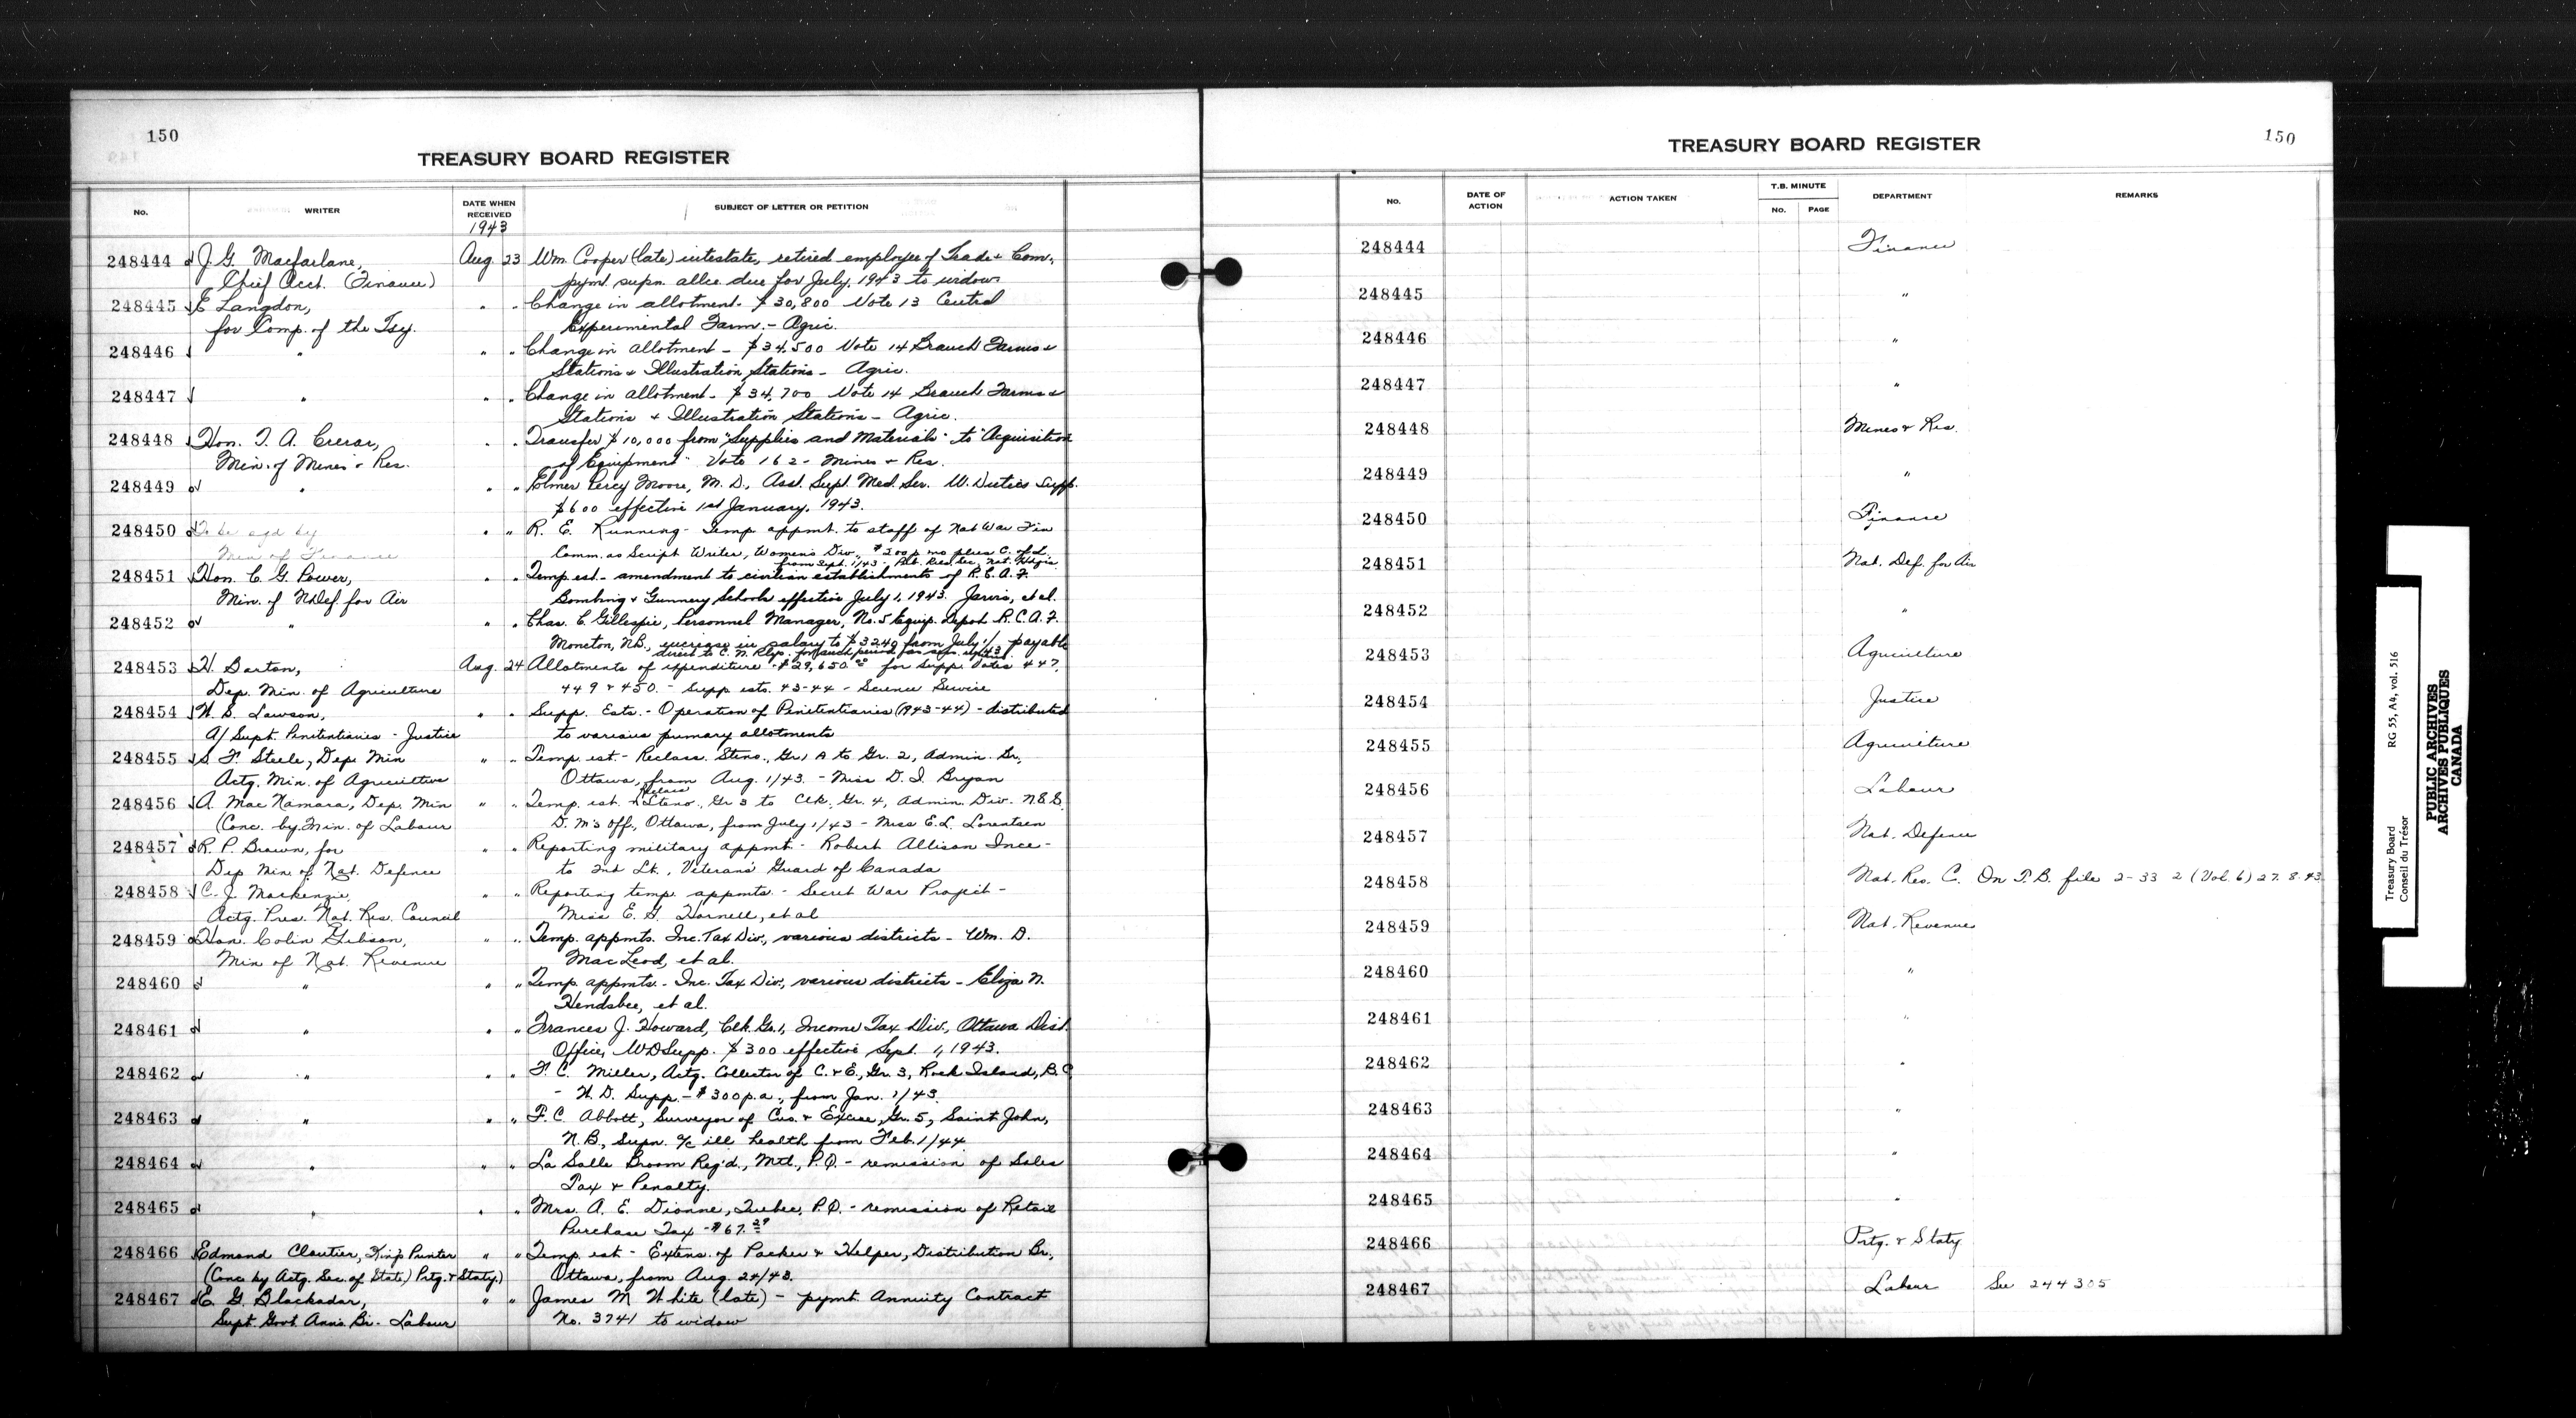 150
TREASURY BOARD REGISTER
No. WRITER DATE WHEN RECEIVED SUBJECT OF LETTER OR PETITION
1943
248444 J. G. Macfarlane, Aug. 23 Wm. Cooper (late) intestate, retired employee of Trade & Com.,
Chief Acct. (Finance) pymt. supn. allce. due for July, 1943 to widow
248445 E Langdon, " " Change in allotment - $30,800 Vote 13 Central
for Comp. of the Tsy. Experimental Farm. - Agric.
248446 " " " Change in allotment - $34,500 Vote 14 Branch Farms &
Stations & Illustration Stations - Agric.
248447 " " " Change in allotment - $34,700 Vote 14 Branch Farms &
Stations & Illustration Stations - Agric.
248448 Hon. T. A. Crerar, " " Transfer $10,000 from "Supplies and Materials" to "Acquisition
Min. of Mines & Res. of Equipment" Vote 162 - Mines & Res.
248449 " " " Elmer Percy Moore, M. D., Asst. Supt. Med. Ser. W. Duties Supp.
$600 effective 1st January, 1943.
248450 To be sgd by " " R. E. Running - Temp appmt. to staff of Nat War Fin
Min of Finance Comm. as Script Writer, Women's Div., $200 p. mo plus C. of L.
from Sept. 1/43 - Nat. Hdqrs.
248451 Hon. C. G. Power, " " Temp est. - amendment to civilian establishments of R.C.A.F.
Min. of N. Def. for Air Bombing & Gunnery Schools effective July 1, 1943. Jarvis, et al.
248452 " " " Chas. E. Gillespie, Personnel Manager, No. 5 Equip. Depot R.C.A.F.
Moncton, N.B., increase in salary to $3240 from July 1/ payable
direct to C. N. Rlys. for
248453 H. Barton, Aug. 24 Allotments of expenditure - $29,650.00 for Supp. Votes 447,
Dep. Min. of Agriculture 449 & 450. - Supp ests. 43-44 - Science Service
248454 Lawson, " " Supp. Ests. - Operation of Penitentiaries (1943-44) - distributed
A/ Supt. Penitentiaries - Justice to various primary allotments
248455 S. F. Steele, Dep. Min " " Temp. est. - Reclass. Steno., Gr. 1 A to Gr. 2, Admin. Br.,
Actg. Min. of Agriculture Ottawa, from Aug. 1/43. - Miss D. I. Bryan
248456 A. MacNamara, Dep. Min " " Temp. est. Reclass Steno., Gr 3 to Clk. Gr. 4, Admin. Div. N.S.S.
(Conc. by Min. of Labour D. M's Off., Ottawa, from July 1/43 - Miss E. L. Lorentsen
248457 R. P. Brown, for " " Reporting military appmt - Robert Allison Ince -
Dep Min. of Nat. Defence to 2nd Lt., Veterans Guard of Canada
248458 C. J. Mackenzie, " " Reporting temp. appmts. - Secret War Project -
Actg. Pres. Nat. Res. Council Miss E. G. Hornell, et al
248459 Hon. Colin Gibson, " " Temp. appmts. Inc. Tax Div., various districts - Wm. D.
Min of Nat. Revenue MacLeod, et al.
248460 " " " Temp. appmts. - Inc. Tax Div., various districts - Eliza N.
Hendsbee, et al.
248461 " " " Frances J. Howard, Clk. Gr. 1, Income Tax Div., Ottawa Dist.
Office, WD Supp. $300 effective Sept. 1, 1943.
248462 " " " F. C. Miller, Actg. Collector of C. & E., Gr. 3, Rock Island, P.Q
- W. D. Supp. - $300 p.a., from Jan. 1/43.
248463 " " " F. C. Abbott, Surveyor of Cus. & Excise, Gr. 5, Saint John,
N.B., Supn. a/c ill health from Feb. 1/44.
248464 " " " La Salle Broom Reg'd., Mtl., P.Q. - remission of Sales
Tax & Penalty.
248465 " " " Mrs. A. E. Dionne, Quebec, P.Q. - remission of Retail
Purchase Tax - $67.29
248466 Edmond Cloutier, King's Printer " " Temp. est - Extens. of Packer & Helper, Distribution Br.,
(Conc by Actg. Sec. of State,) Prtg. & Staty.) Ottawa, from Aug. 24/43.
248467 E. G. Blackadar, " " James M White (late) - pymt. Annuity Contract
Supt. Govt. Ann's. Br. - Labour No. 3741 to widow
TREASURY BOARD REGISTER 150
No. DATE OF ACTION ACTION TAKEN T.B. MINUTE No. PAGE DEPARTMENT REMARKS
248444 Finance
248445 "
248446 "
248447 "
248448 Mines & Res.
248449 "
248450 Finance
248451 Nat. Def. for Air
248452 "
248453 Agriculture
248454 Justice
248455 Agriculture
248456 Labour
248457 Nat. Defence
248458 Nat. Res. C. On T.B. file 2-33 2 (Vol. 6) 27.8.43
248459 Nat. Revenue
248460 "
248461 "
248462 "
248463 "
248464 "
248465 "
248466 Prtg. & Staty
248467 Labour See 244305
Treasury Board RG 55, A4, vol. 516
Conseil du Trésor
PUBLIC ARCHIVES
ARCHIVES PUBLIQUES
CANADA